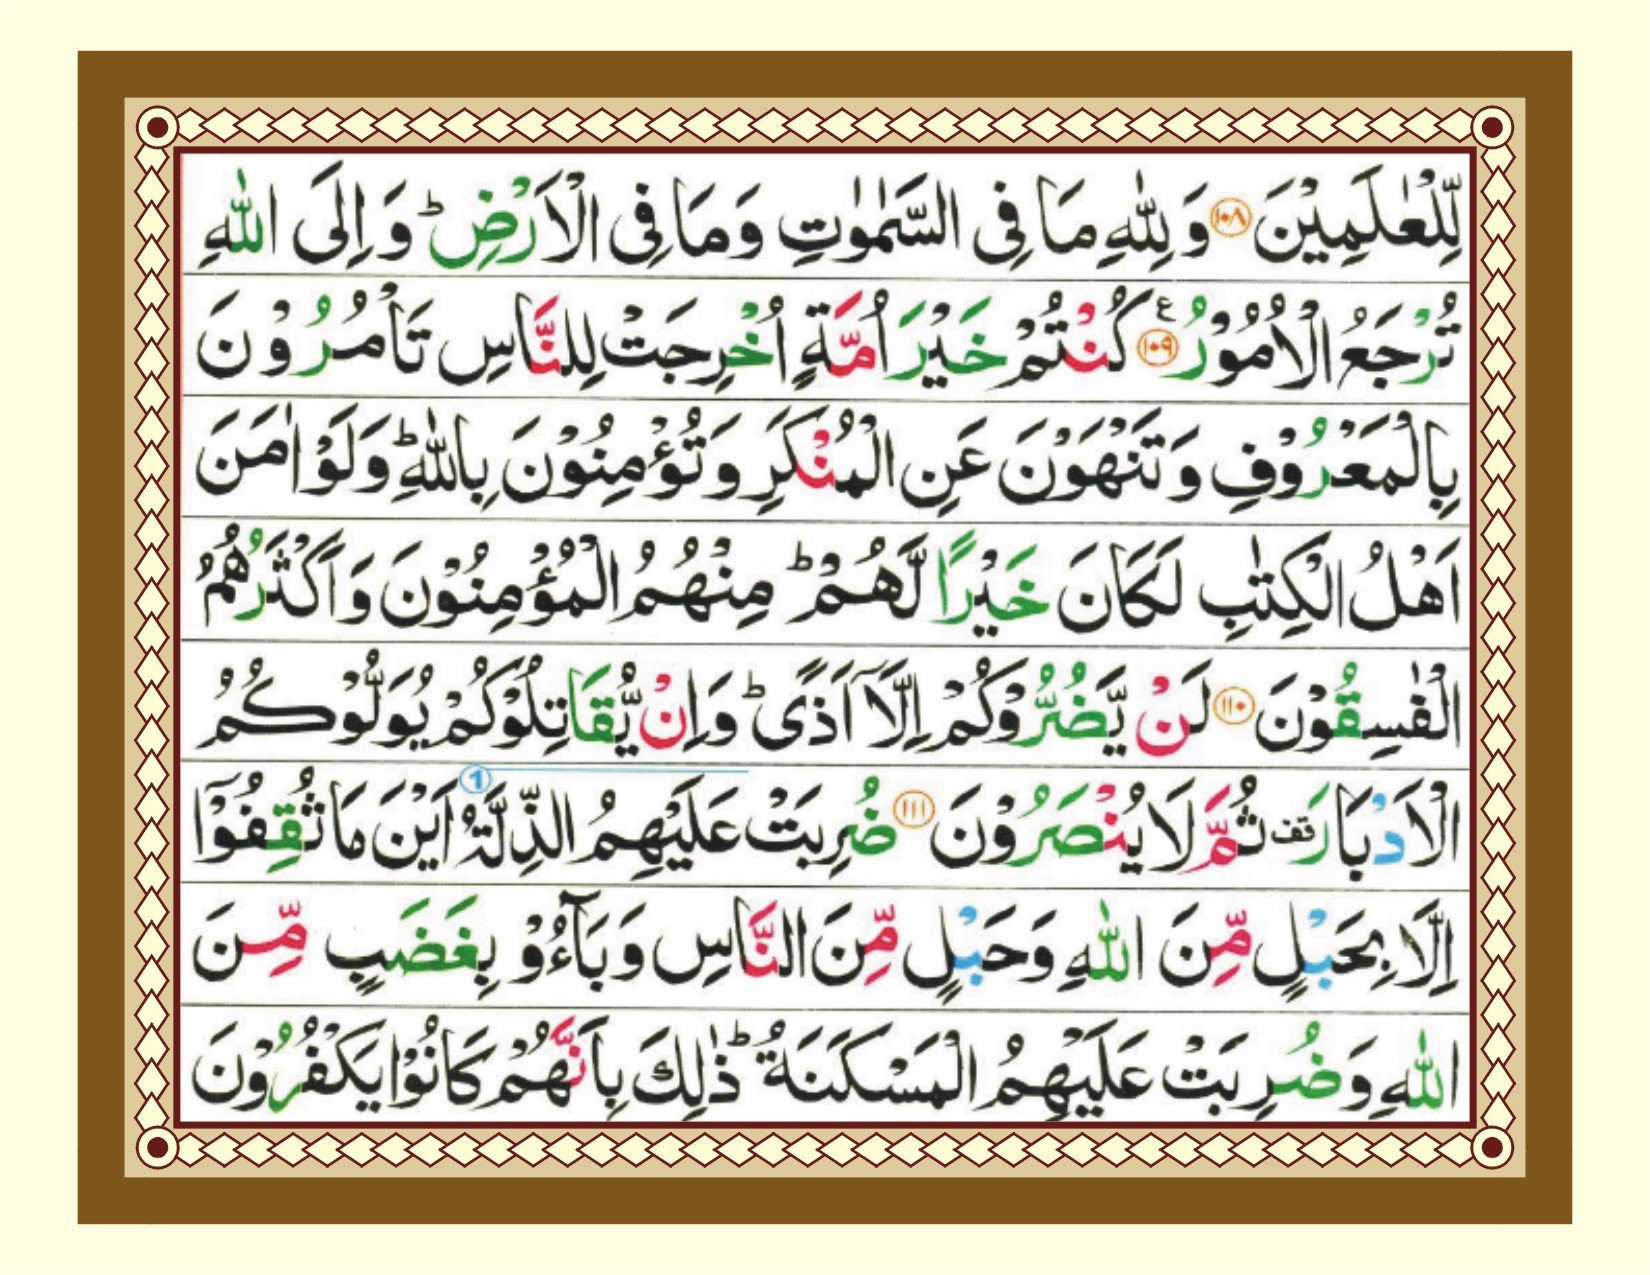 لِّلْعٰلَمِيْنَ ۝١٠٨ وَ لِلّٰهِ مَا فِى السَّمٰوٰتِ وَمَا فِى الْاَرْضِ ؕ وَ اِلَى اللّٰهِ
تُرْجَعُ الْاُمُوْرُ ۝١٠٩ ع كُنْتُمْ خَيْرَ اُمَّةٍ اُخْرِجَتْ لِلنَّاسِ تَاْمُرُوْنَ
بِالْمَعْرُوْفِ وَ تَنْهَوْنَ عَنِ الْمُنْكَرِ وَ تُؤْمِنُوْنَ بِاللّٰهِ ؕ وَلَوْ اٰمَنَ
اَهْلُ الْكِتٰبِ لَكَانَ خَيْرًا لَّهُمْ ؕ مِنْهُمُ الْمُؤْمِنُوْنَ وَ اَكْثَرُهُمُ
الْفٰسِقُوْنَ ۝١١٠ لَنْ يَّضُرُّوْكُمْ اِلَّاۤ اَذًى ؕ وَ اِنْ يُّقَاتِلُوْكُمْ يُوَلُّوْكُمُ
الْاَدْبَارَ قف ثُمَّ لَا يُنْصَرُوْنَ ۝١١١ ضُرِبَتْ عَلَيْهِمُ الذِّلَّةُ 1 اَيْنَ مَا ثُقِفُوْۤا
اِلَّا بِحَبْلٍ مِّنَ اللّٰهِ وَحَبْلٍ مِّنَ النَّاسِ وَ بَآءُوْ بِغَضَبٍ مِّنَ
اللّٰهِ وَ ضُرِبَتْ عَلَيْهِمُ الْمَسْكَنَةُ ؕ ذٰلِكَ بِاَنَّهُمْ كَانُوْا يَكْفُرُوْنَ